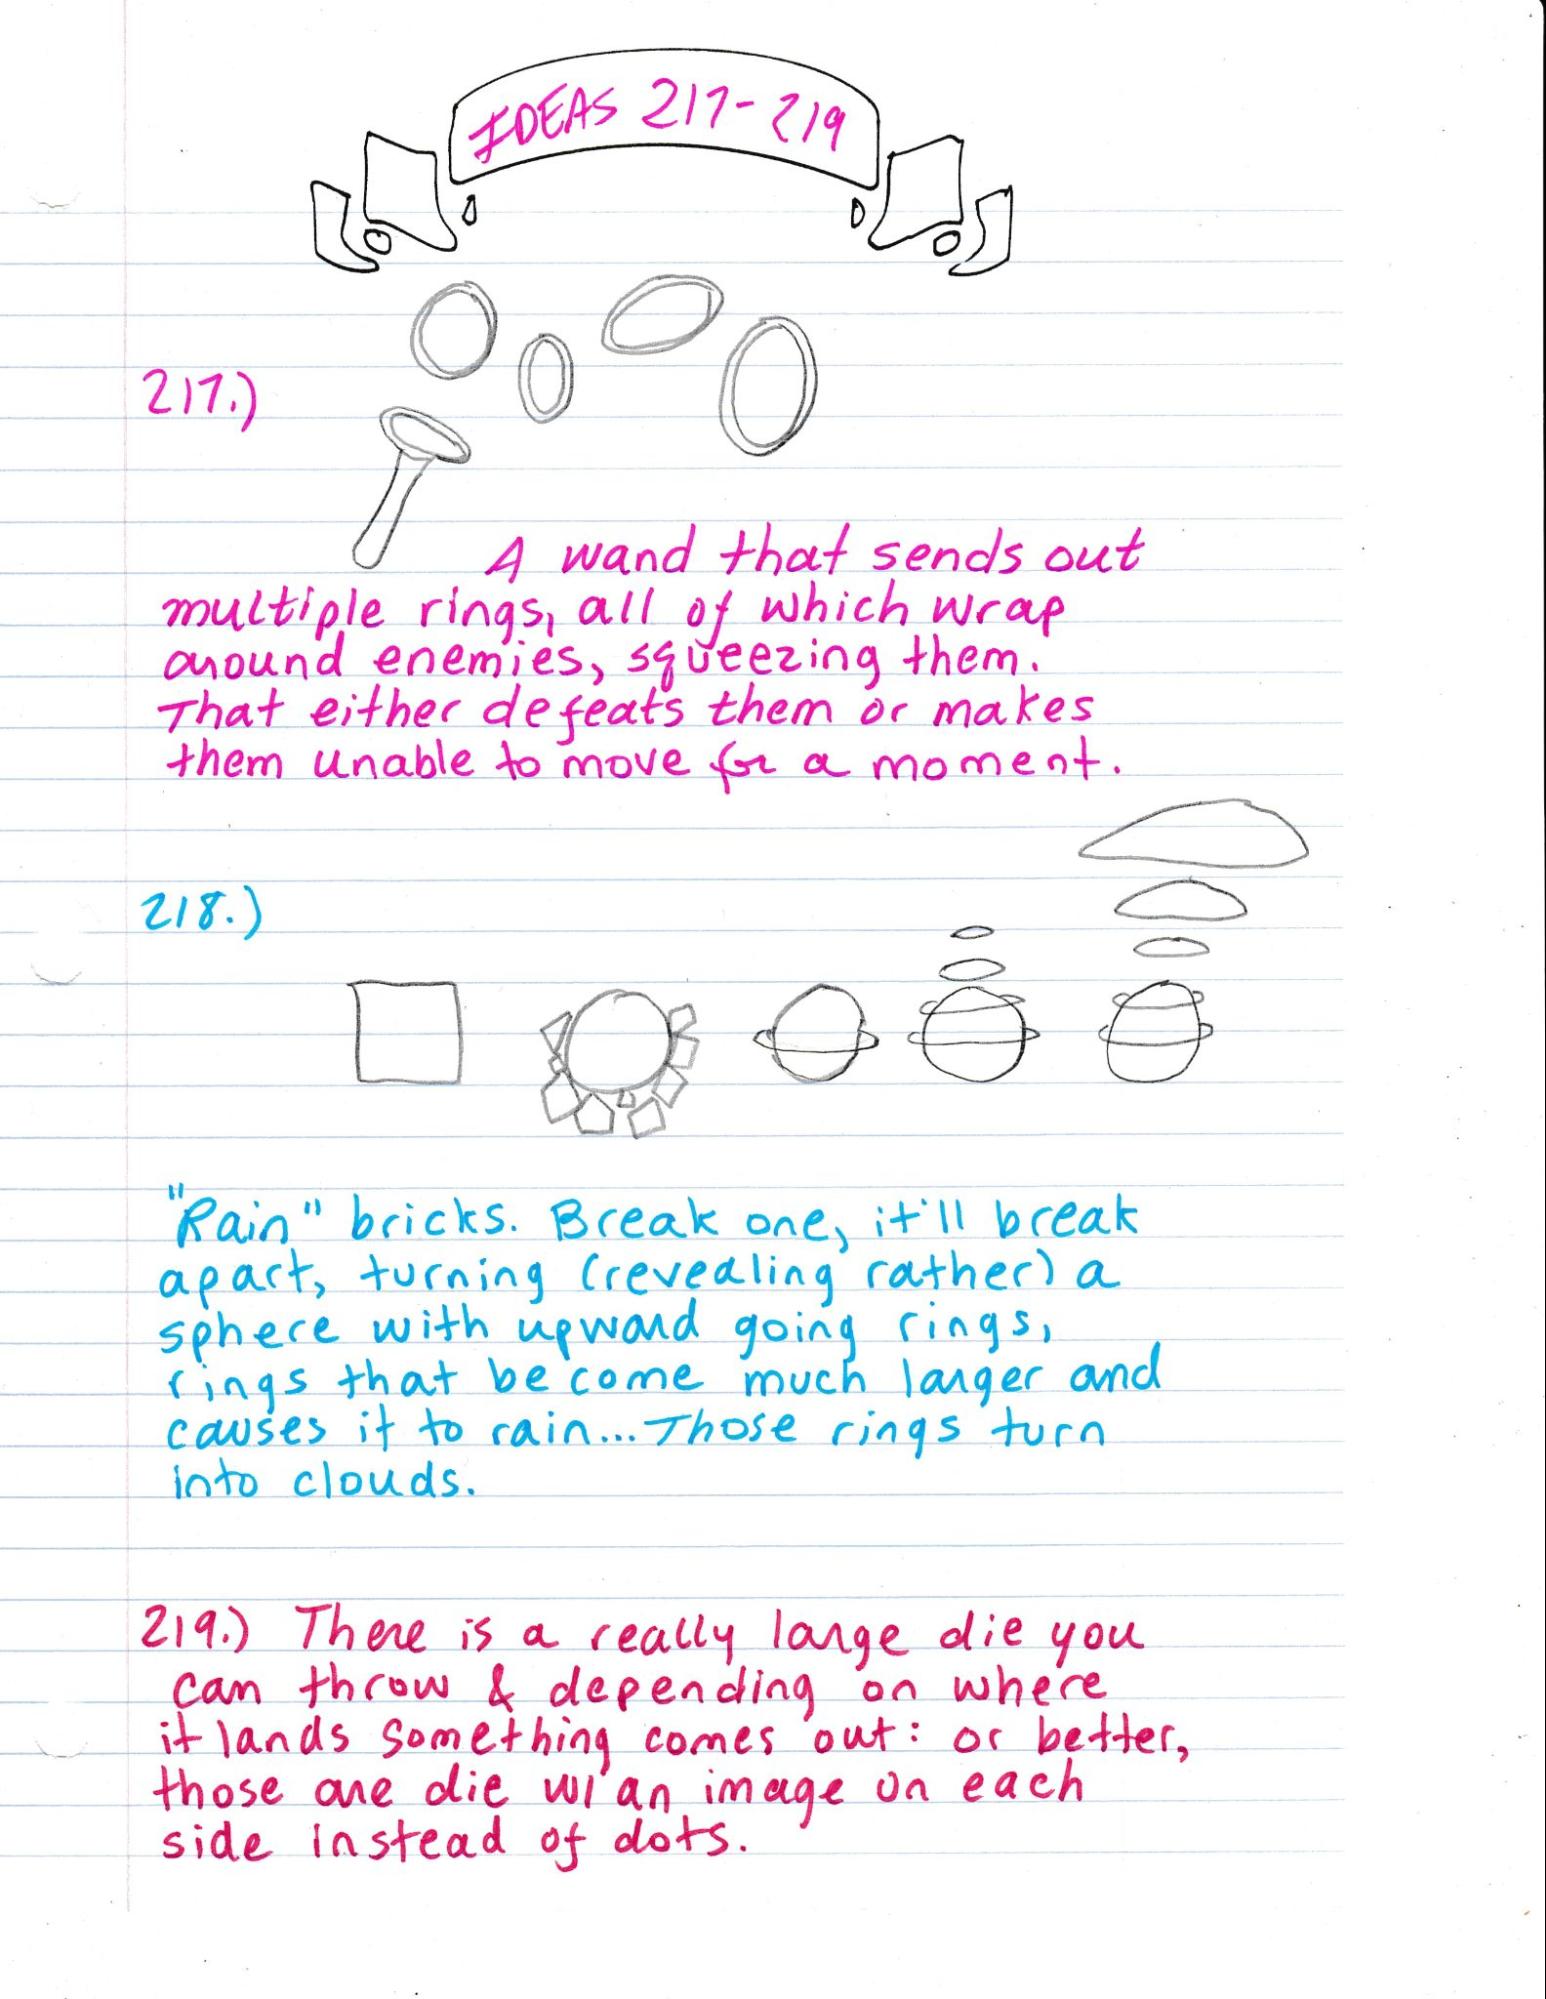 IDEAS 217-219
217.)
A wand that sends out
multiple rings, all of which wrap
around enemies, squeezing them.
That either defeats them or makes
them unable to move for a moment.
218.)
"Rain" bricks. Break one, it'll break
apart, turning (revealing rather) a
sphere with upward going rings,
rings that become much larger and
causes it to rain... Those rings turn
into clouds.
219.) There is a really large die you
can throw & depending on where
it lands something comes out: or better,
those are die w/ an image on each
side instead of dots.